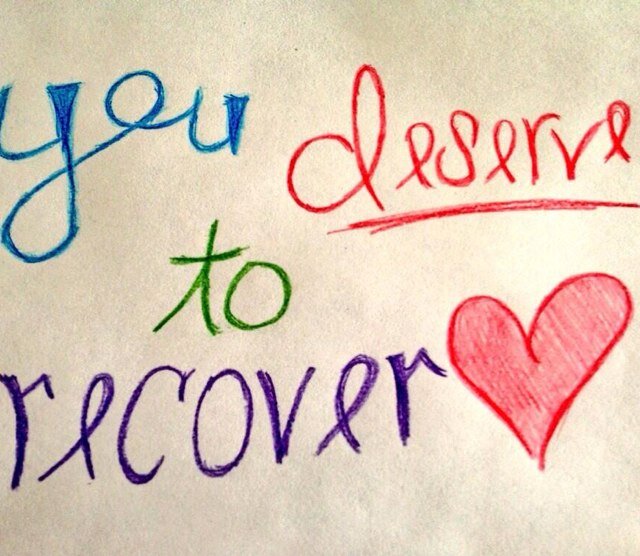 you deserve
to
recover